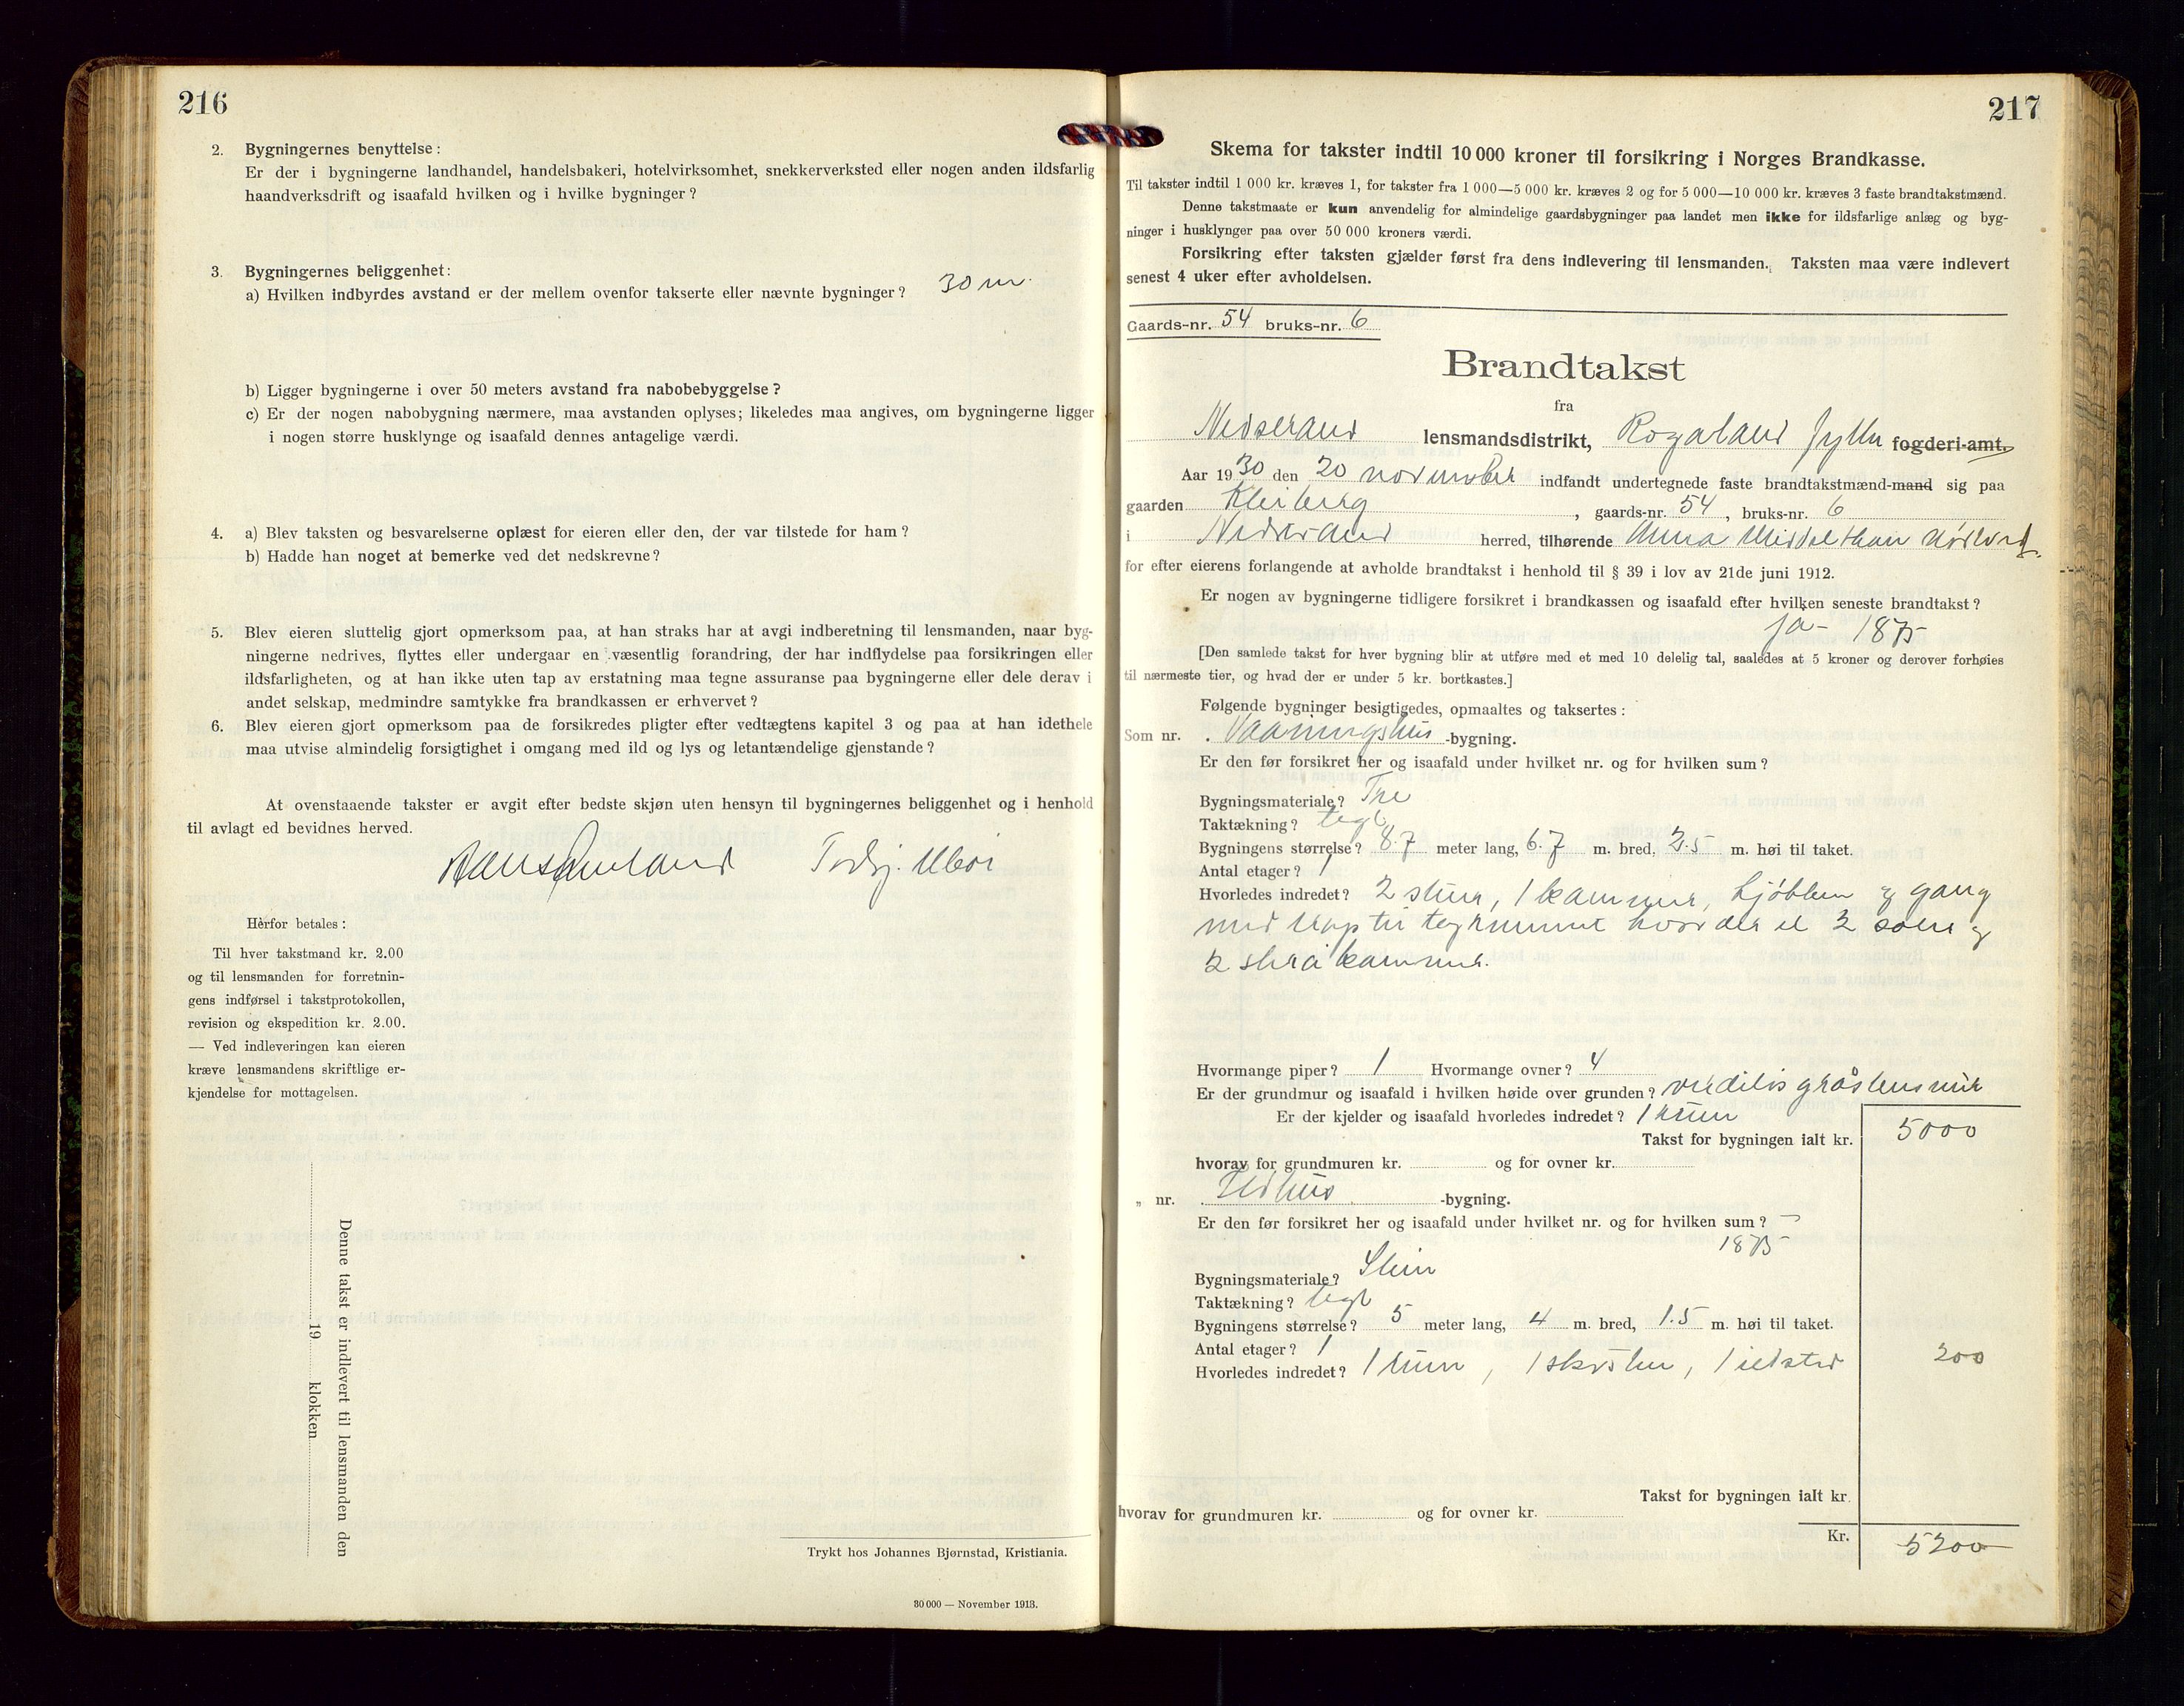 216
2. Bygningernes benyttelse:
Er der i bygningerne landhandel, handelsbakeri, hotelvirksomhet, snekkerverksted eller nogen anden ildsfarlig
haandverksdrift og isaafald hvilken og i hvilke bygninger?
3. Bygningernes beliggenhet:
a) Hvilken indbyrdes avstand er der mellem ovenfor takserte eller nævnte bygninger? 30 m.
b) Ligger bygningerne i over 50 meters avstand fra nabobebyggelse?
c) Er der nogen nabobygning nærmere, maa avstanden oplyses; likeledes maa angives, om bygningerne ligger
i nogen større husklynge og isaafald dennes antagelige værdi.
4. a) Blev taksten og besvarelserne oplæst for eieren eller den, der var tilstede for ham?
b) Hadde han noget at bemerke ved det nedskrevne?
5. Blev eieren sluttelig gjort opmerksom paa, at han straks har at avgi indberetning til lensmanden, naar byg-
ningerne nedrives, flyttes eller undergaar en væsentlig forandring, der har indflydelse paa forsikringen eller
ildsfarligheten, og at han ikke uten tap av erstatning maa tegne assuranse paa bygningerne eller dele derav i
andet selskap, medmindre samtykke fra brandkassen er erhvervet?
6. Blev eieren gjort opmerksom paa de forsikredes pligter efter vedtægtens kapitel 3 og paa at han idethele
maa utvise almindelig forsigtighet i omgang med ild og lys og letantændelige gjenstande?
At ovenstaaende takster er avgit efter bedste skjøn uten hensyn til bygningernes beliggenhet og i henhold
til avlagt ed bevidnes herved.
Herfor betales:
Til hver takstmand kr. 2.00
og til lensmanden for forretnin-
gens indførsel i takstprotokollen,
revision og ekspedition kr. 2.00.
— Ved indleveringen kan eieren
kræve lensmandens skriftlige er-
kjendelse for mottagelsen.
Denne takst er indlevert til lensmanden den
19 klokken
Trykt hos Johannes Bjørnstad, Kristiania.
30 000 — November 1913.
217
Skema for takster indtil 10 000 kroner til forsikring i Norges Brandkasse.
Til takster indtil 1 000 kr. kræves 1, for takster fra 1 000—5 000 kr. kræves 2 og for 5 000—10 000 kr. kræves 3 faste brandtakstmænd.
Denne takstmaate er kun anvendelig for almindelige gaardsbygninger paa landet men ikke for ildsfarlige anlæg og byg-
ninger i husklynger paa over 50 000 kroners værdi.
Forsikring efter taksten gjælder først fra dens indlevering til lensmanden. Taksten maa være indlevert
senest 4 uker efter avholdelsen.
Gaards-nr. 54 bruks-nr. 6
Brandtakst
fra
Nedstrand lensmandsdistrikt, Rogaland fylke fogderi-amt.
Aar 1930 den 20 november indfandt undertegnede faste brandtakstmænd-mand sig paa
gaarden Kleiberg, gaards-nr. 54, bruks-nr. 6
i Nedstrand herred, tilhørende Anna Middelthon
for efter eierens forlangende at avholde brandtakst i henhold til § 39 i lov av 21de juni 1912.
Er nogen av bygningerne tidligere forsikret i brandkassen og isaafald efter hvilken seneste brandtakst?
Ja - 1875
[Den samlede takst for hver bygning blir at utføre med et med 10 delelig tal, saaledes at 5 kroner og derover forhøies
til nærmeste tier, og hvad der er under 5 kr. bortkastes.]
Følgende bygninger besigtigedes, opmaaltes og taksertes:
Som nr. Vaaningshus-bygning.
Er den før forsikret her og isaafald under hvilket nr. og for hvilken sum?
Bygningsmateriale? Tre
Taktækning? tegl
Bygningens størrelse? 8.7 meter lang, 6.7 m. bred, 2.5 m. høi til taket.
Antal etager? 1
Hvorledes indredet? 2 stuer, 1 kammer, kjøkken og gang
med trap til hvor der er 2 saler og
2 skråkammer.
Hvormange piper? 1 Hvormange ovner? 4
Er der grundmur og isaafald i hvilken høide over grunden? verdiløs gråstensmur
Er der kjelder og isaafald hvorledes indredet? 1 rum
Takst for bygningen ialt kr. 5000
hvorav for grundmuren kr. og for ovner kr.
„ nr. Ildhus-bygning.
Er den før forsikret her og isaafald under hvilket nr. og for hvilken sum? —
1875
Bygningsmateriale? Stein
Taktækning? tegl
Bygningens størrelse? 5 meter lang, 4 m. bred, 1.5 m. høi til taket.
Antal etager? 1
Hvorledes indredet? 1 rum, 1 skorsten, 1 ildsted 200
Takst for bygningen ialt kr.
hvorav for grundmuren kr. og for ovner kr.
Kr. 5200